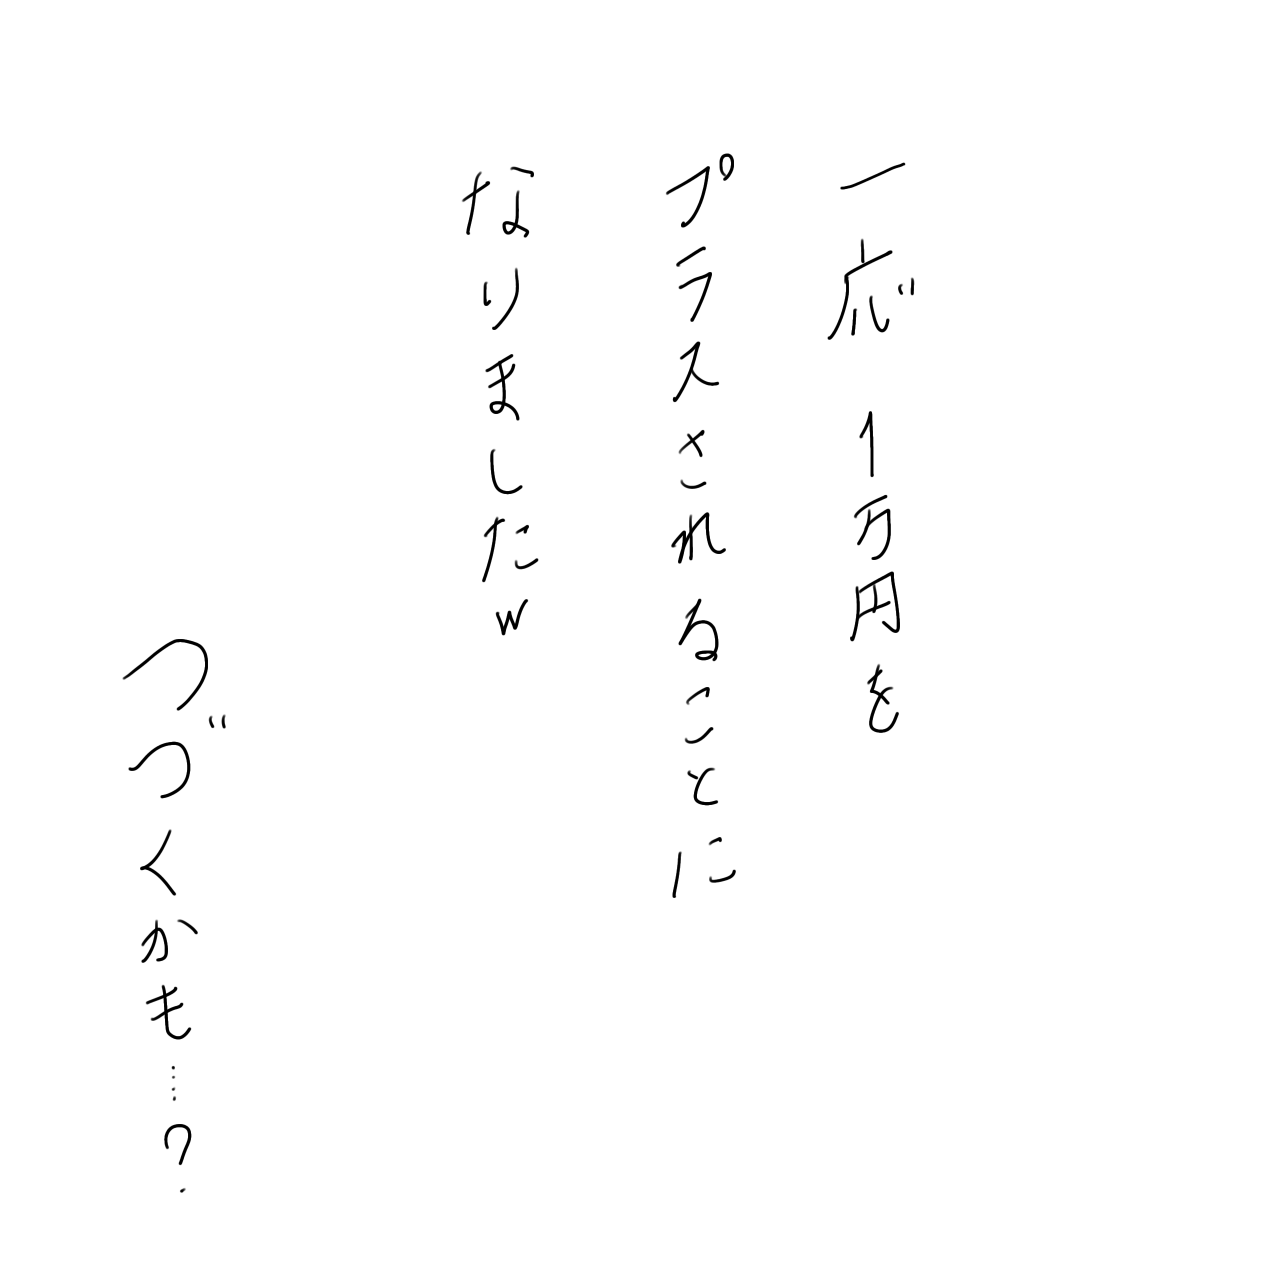 一応 1万円を
プラスされることに
なりましたw
つづくかも……?